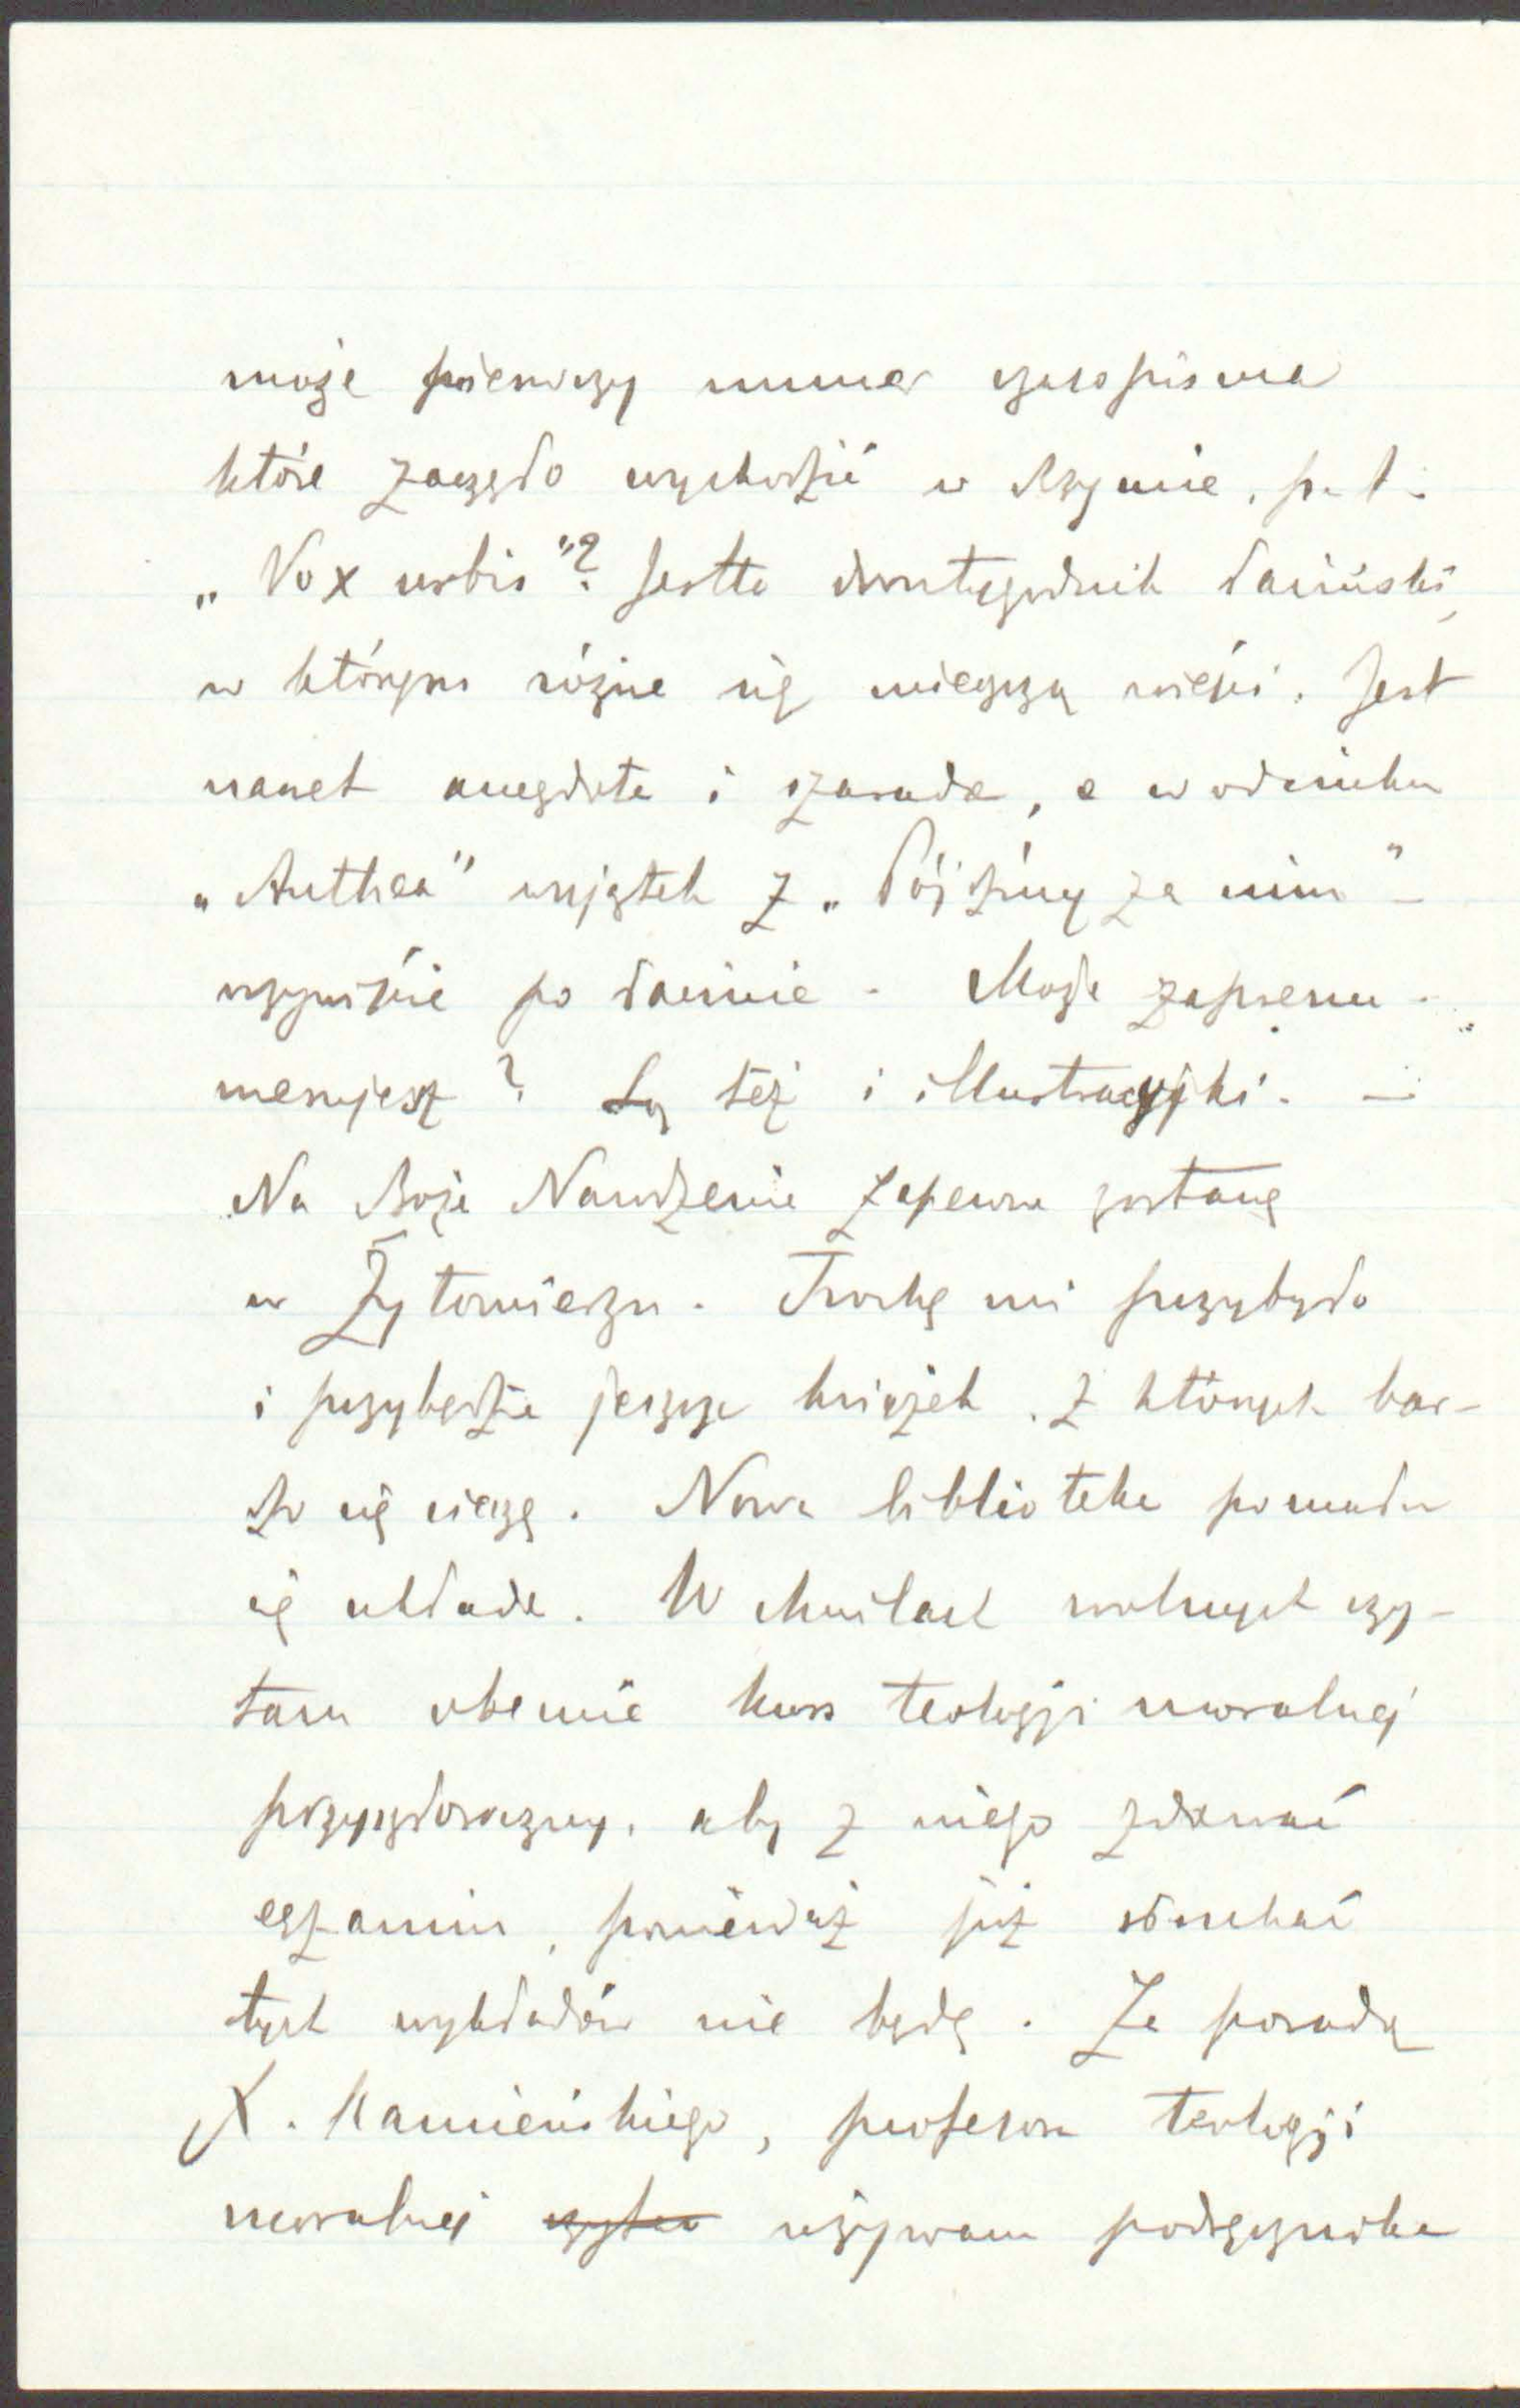 może pierwszy numer czasopisma
które zaczęło wychodzić w Rzymie, p. t.
„Vox urbis"? Jestto dwutygodnik łaciński,
w którym różne się mieszczą rzeczy. Jest
nawet anegdota i szarada, a w odcinku
„Anthea" wyjątek z „Pójdźmy za nim" –
oczywiście po łacinie. Może zaprenu-
merujesz? Są też i illustracyjki. —
Na Boże Narodzenie zapewne zostanę
w Żytomierzu. Trochę mi przybyło
i przybędzie jeszcze książek, z których bar-
dzo się cieszę. Nowa biblioteka pomału
się układa. W chwilach wolnych czy-
tam obecnie kurs teologji moralnej
przyszłoroczny, aby z niego zdawać
egzamin, ponieważ już słuchać
tych wykładów nie będę. Za poradą
X. Kamieńskiego, profesora teologji
moralnej czytam używam podręcznika